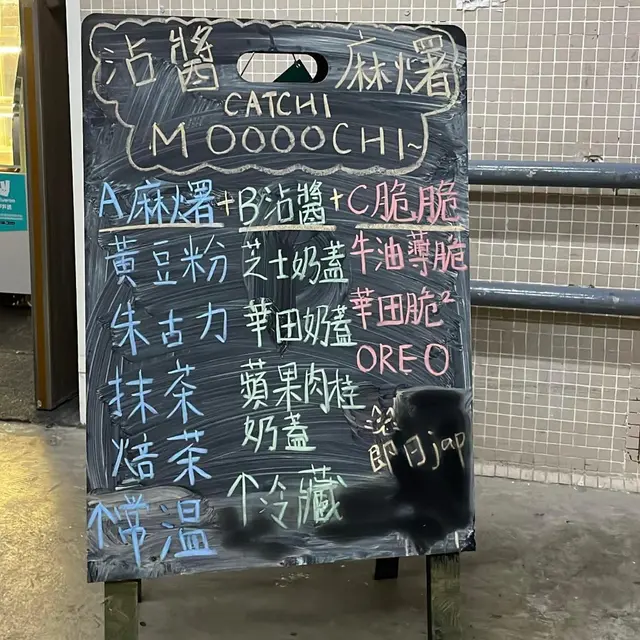 沾醬 麻糬
CATCHI
MOOOOCHI~
A麻糬+B沾醬+C脆脆
黃豆粉
朱古力
抹茶
焙茶
↑常溫
芝士奶蓋
華田奶蓋
蘋果肉桂
奶蓋
↑冷藏
牛油薄脆
華田脆²
OREO
即日jap